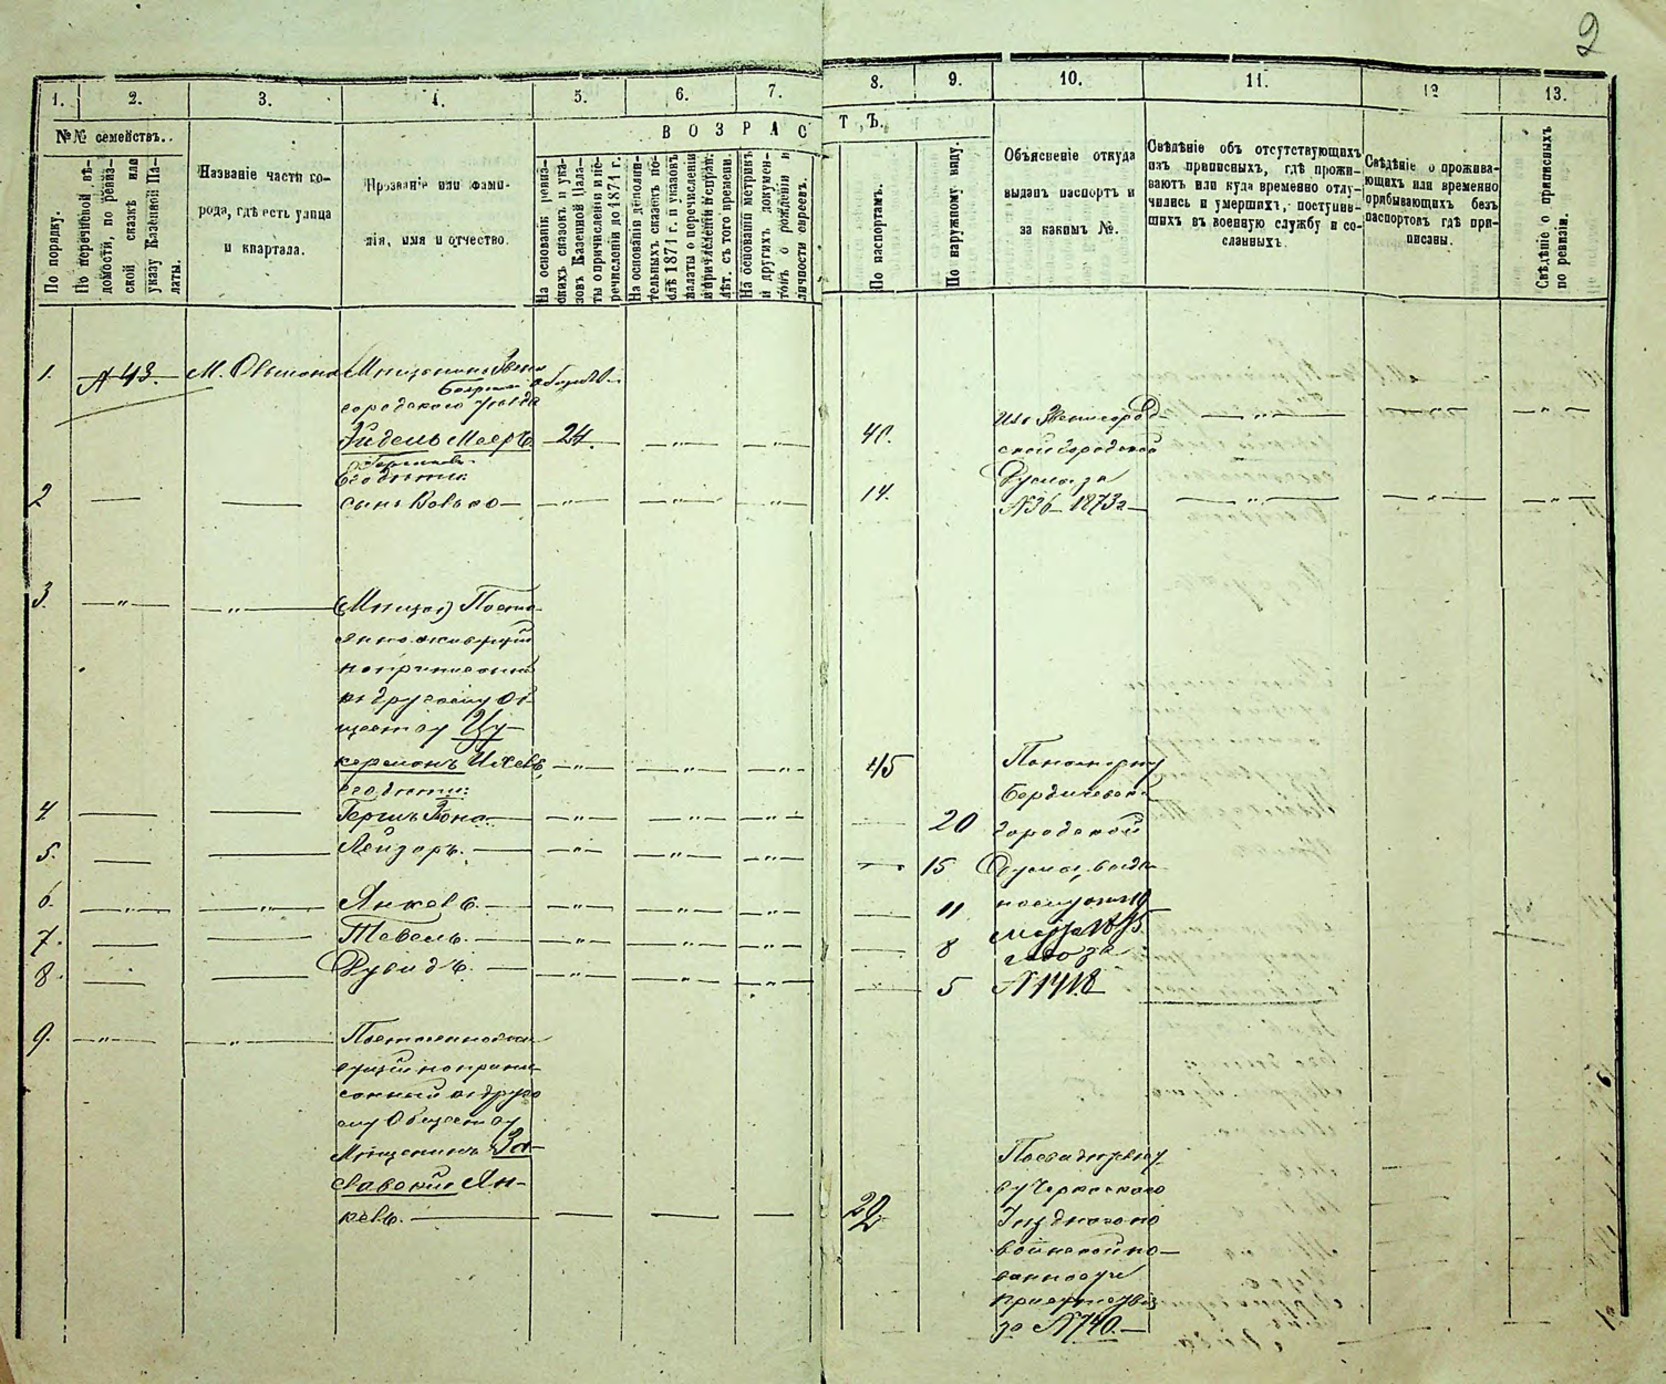 2
1. 2. 3. 4. 5. 6. 7. 8. 9. 10. 11. 12 13.
№№ семействъ.
В О З Р А С Т Ъ.
По порядку.
По перечневой вѣ-
домости, по ревиз-
ской сказкѣ или
указу Казенной Па-
латы.
Названіе части го-
рода, гдѣ есть улица
и квартала.
Прозваніе или фами-
лія, имя и отчество.
На основаніи ревиз-
скихъ сказокъ и ука-
зовъ Казенной Пала-
ты о причисленіи и пе-
речисленіи до 1871 г.
На основаніи дополни-
тельныхъ сказокъ по-
слѣ 1871 г. и указовъ
палаты о перечисленіи
и причисленіи и справ.
лѣт. съ того времени.
На основаніи метрикъ
и другихъ докумен-
товъ о рожденіи и
личности евреевъ.
По паспортамъ.
По наружному виду.
Объясненіе откуда
выданъ паспортъ и
за какимъ №.
Свѣдѣніе объ отсутствующихъ
изъ приписныхъ, гдѣ прожи-
ваютъ или куда временно отлу-
чились и умершихъ, поступив-
шихъ въ военную службу и со-
сланныхъ.
Свѣдѣніе о прожива-
ющихъ или временно
прибывающихъ безъ
паспортовъ гдѣ при-
писаны.
Свѣдѣніе о приписныхъ
по ревизіи.
1. 43. М. Ольшана Мѣщанинъ Звени
городского уѣзда
Айдель Мееръ 24. 41. Изъ Звенигород-
ской городской
Его дѣти: Думы за
2 сынъ Волько 14. №36 1873 г
3. Посто-
янно живущій
но приписаный
къ другому об-
ществу Цу-
керманъ Ихель 45 По паспорту
его дѣти: Бердичевской
4 Герш 20 городской
5. Лейзоръ. 15 Думы, выдан
6. Янкель. 11 ному
7. Тевель. 8 года за
8. Рувидъ. 5 №1418
9. Постоянно жи
вущій но припи
санный къ друго
му Обществу
Мѣщанинъ За-
славскій Ян-
кель. По свидѣтельству
Черкаского
Уѣзднаго по
воинской по-
винности
присутствія
за №740.